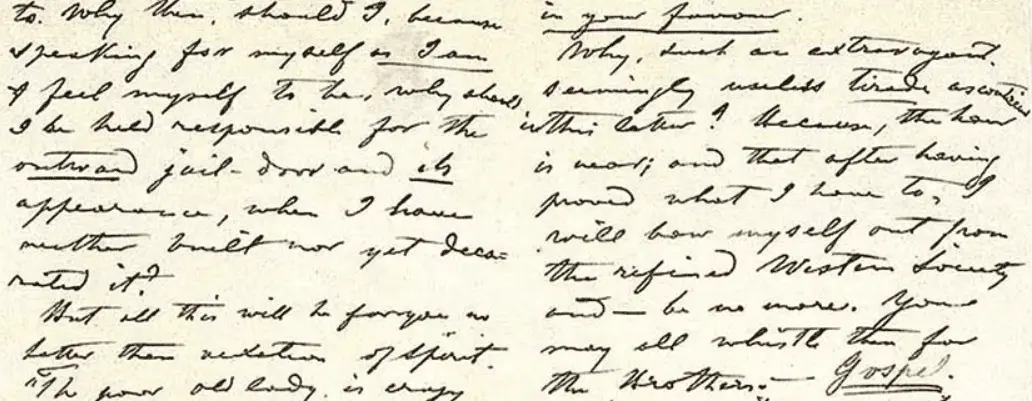 to. Why then, should I, because
speaking for myself as I am
& feel myself to be, why should
I be held responsible for the
outward jail-door and its
appearance, when I have
neither built nor yet deco=
rated it?
But all this will be for you no
better than vexation of spirit.
"The poor old lady is crazy
in your favour.
Why, such an extravagant,
seemingly useless tirade as contained
in this letter? Because, the hour
is near; and that after having
proved what I have to, I
will bow myself out from
the refined Western Society
and — be no more. You
may all whistle then for
the Brothers. — Gospel.